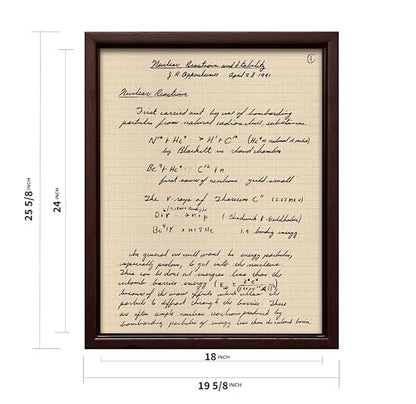 ①
Nuclear Reactions and Stability
J. R. Oppenheimer April 28 1941
Nuclear Reactions
First carried out by use of bombarding
particles from natural radioactive substances
by Blackett in cloud chamber
Be⁹ + He⁴ → C¹² + n
first source of neutrons - yield small
The γ-rays of "Thorium C" (2.62 MeV)
D + γ → n + p (Chadwick & Goldhaber)
binding energy
In general we will want to use energy particles,
especially protons, to get into the reactions.
This can be done at energies less than the
coulomb barrier energy
because of the wave effects which allow the
particle to diffract through the barrier. There
are often simple nuclear reactions produced by
bombarding particles of energy less than the coulomb barrier
25 5/8 INCH
24 INCH
18 INCH
19 5/8 INCH